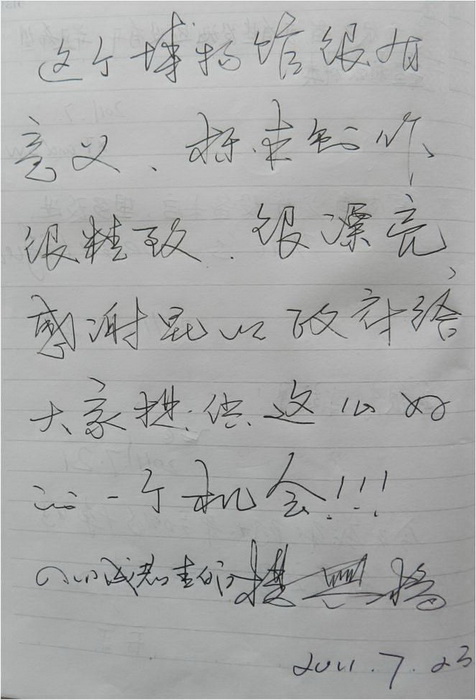 这个博物馆很有
意义、标本制作
很精致、很漂亮
感谢昆山政府给
大家提供这么好
的一个机会!!!
2011.7.23